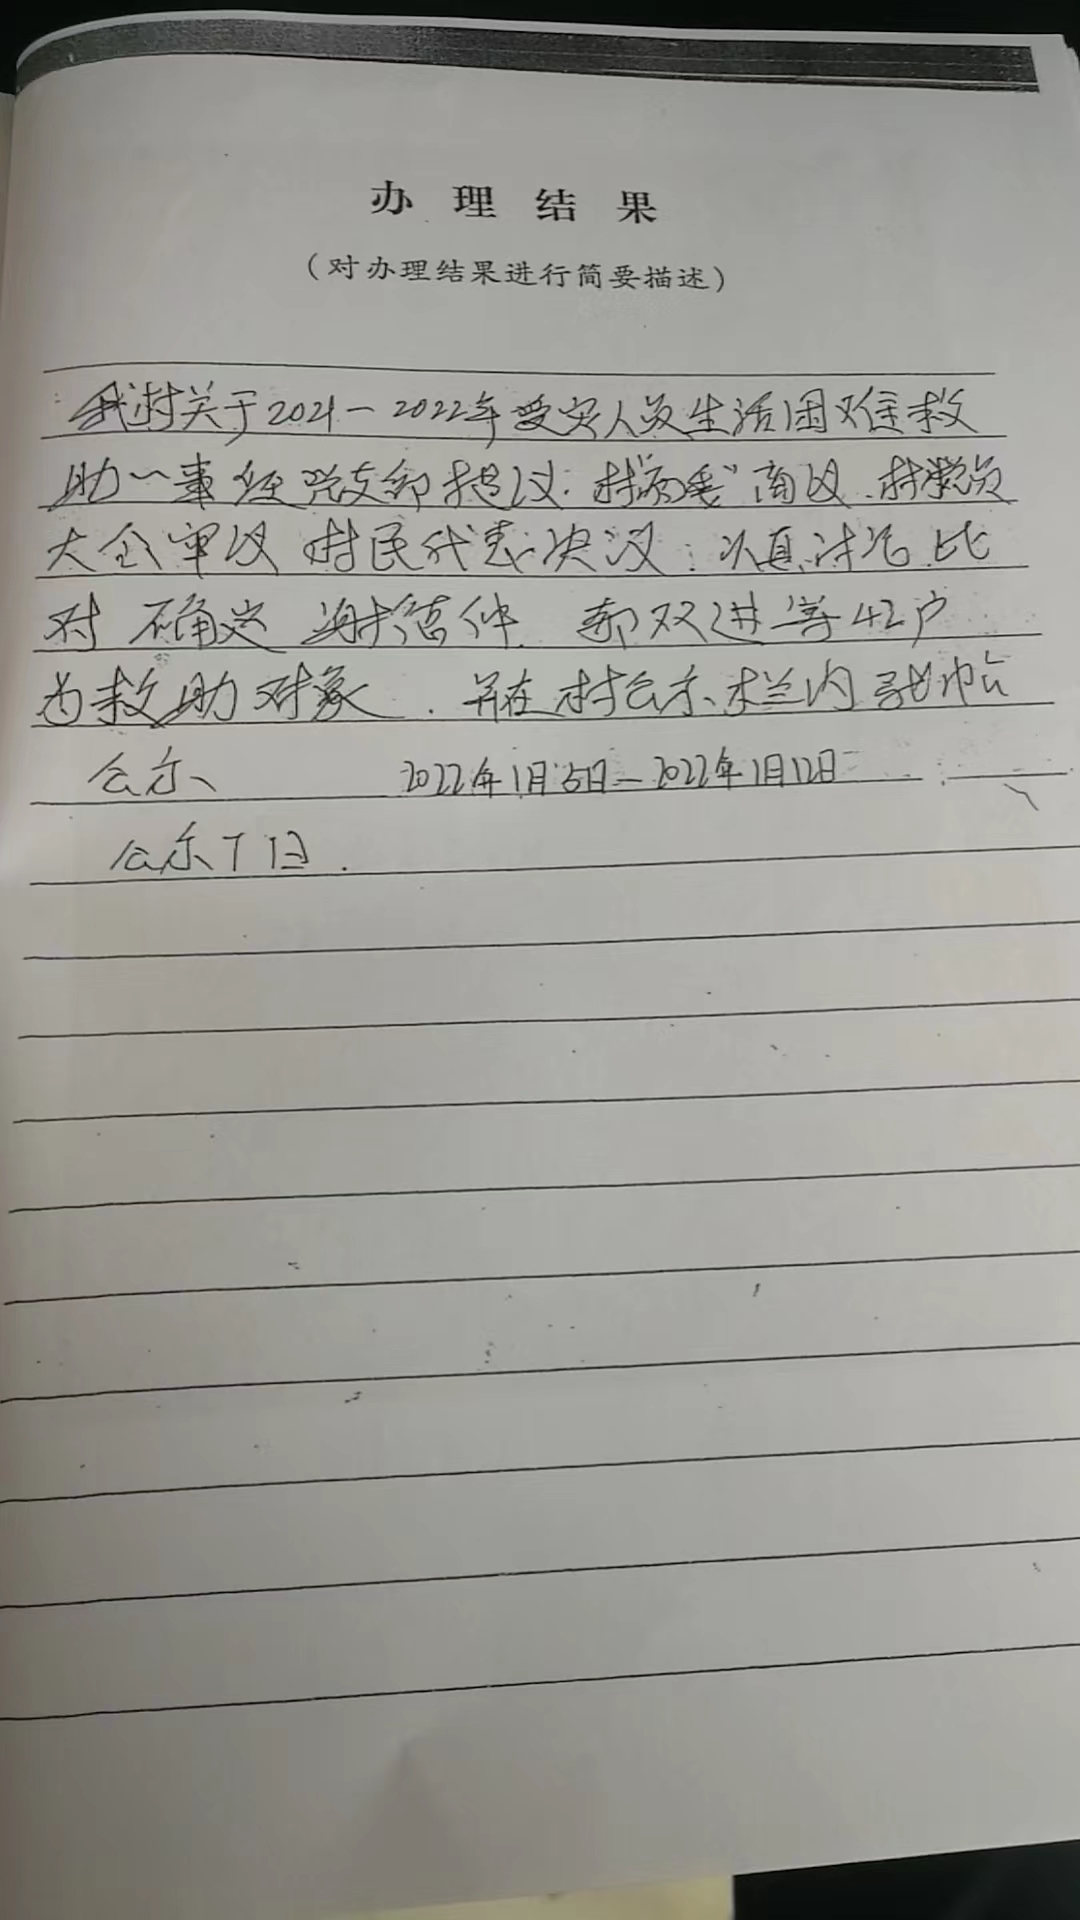 办理结果
（对办理结果进行简要描述）
我村关于2021—2022年受灾人员生活困难救
助一事经党支部提议.村"两委"商议.村党员
大会审议 村民代表决议:认真讨论.比
对 确定 郝双进等42户
为救助对象.并在村公示栏内张帖
公示 2022年1月5日—2022年1月12日
公示7日.